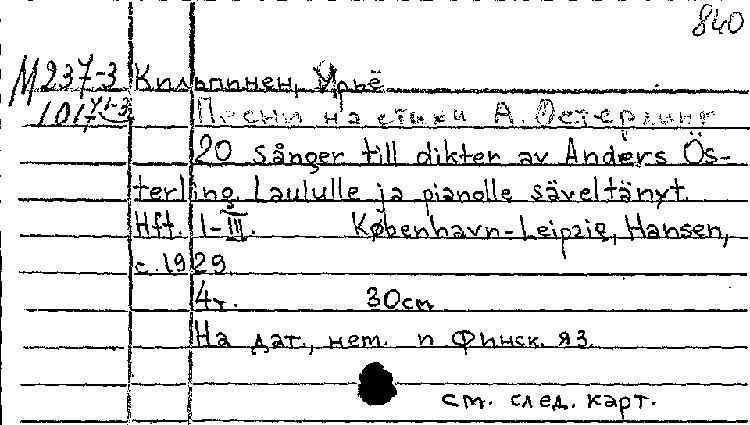 840
М 237-3 Кильпинен, Урьё
1017 Песни на стихи А. Эстерлинг
20 Sånger till dikter av Anders Ös-
terling. Laululle ja pianolle säveltänyt.
Hft. I-III. København-Leipzig, Hansen,
c. 1929.
4т. 30см
На дат., нем. и финск. яз.
см. след. карт.